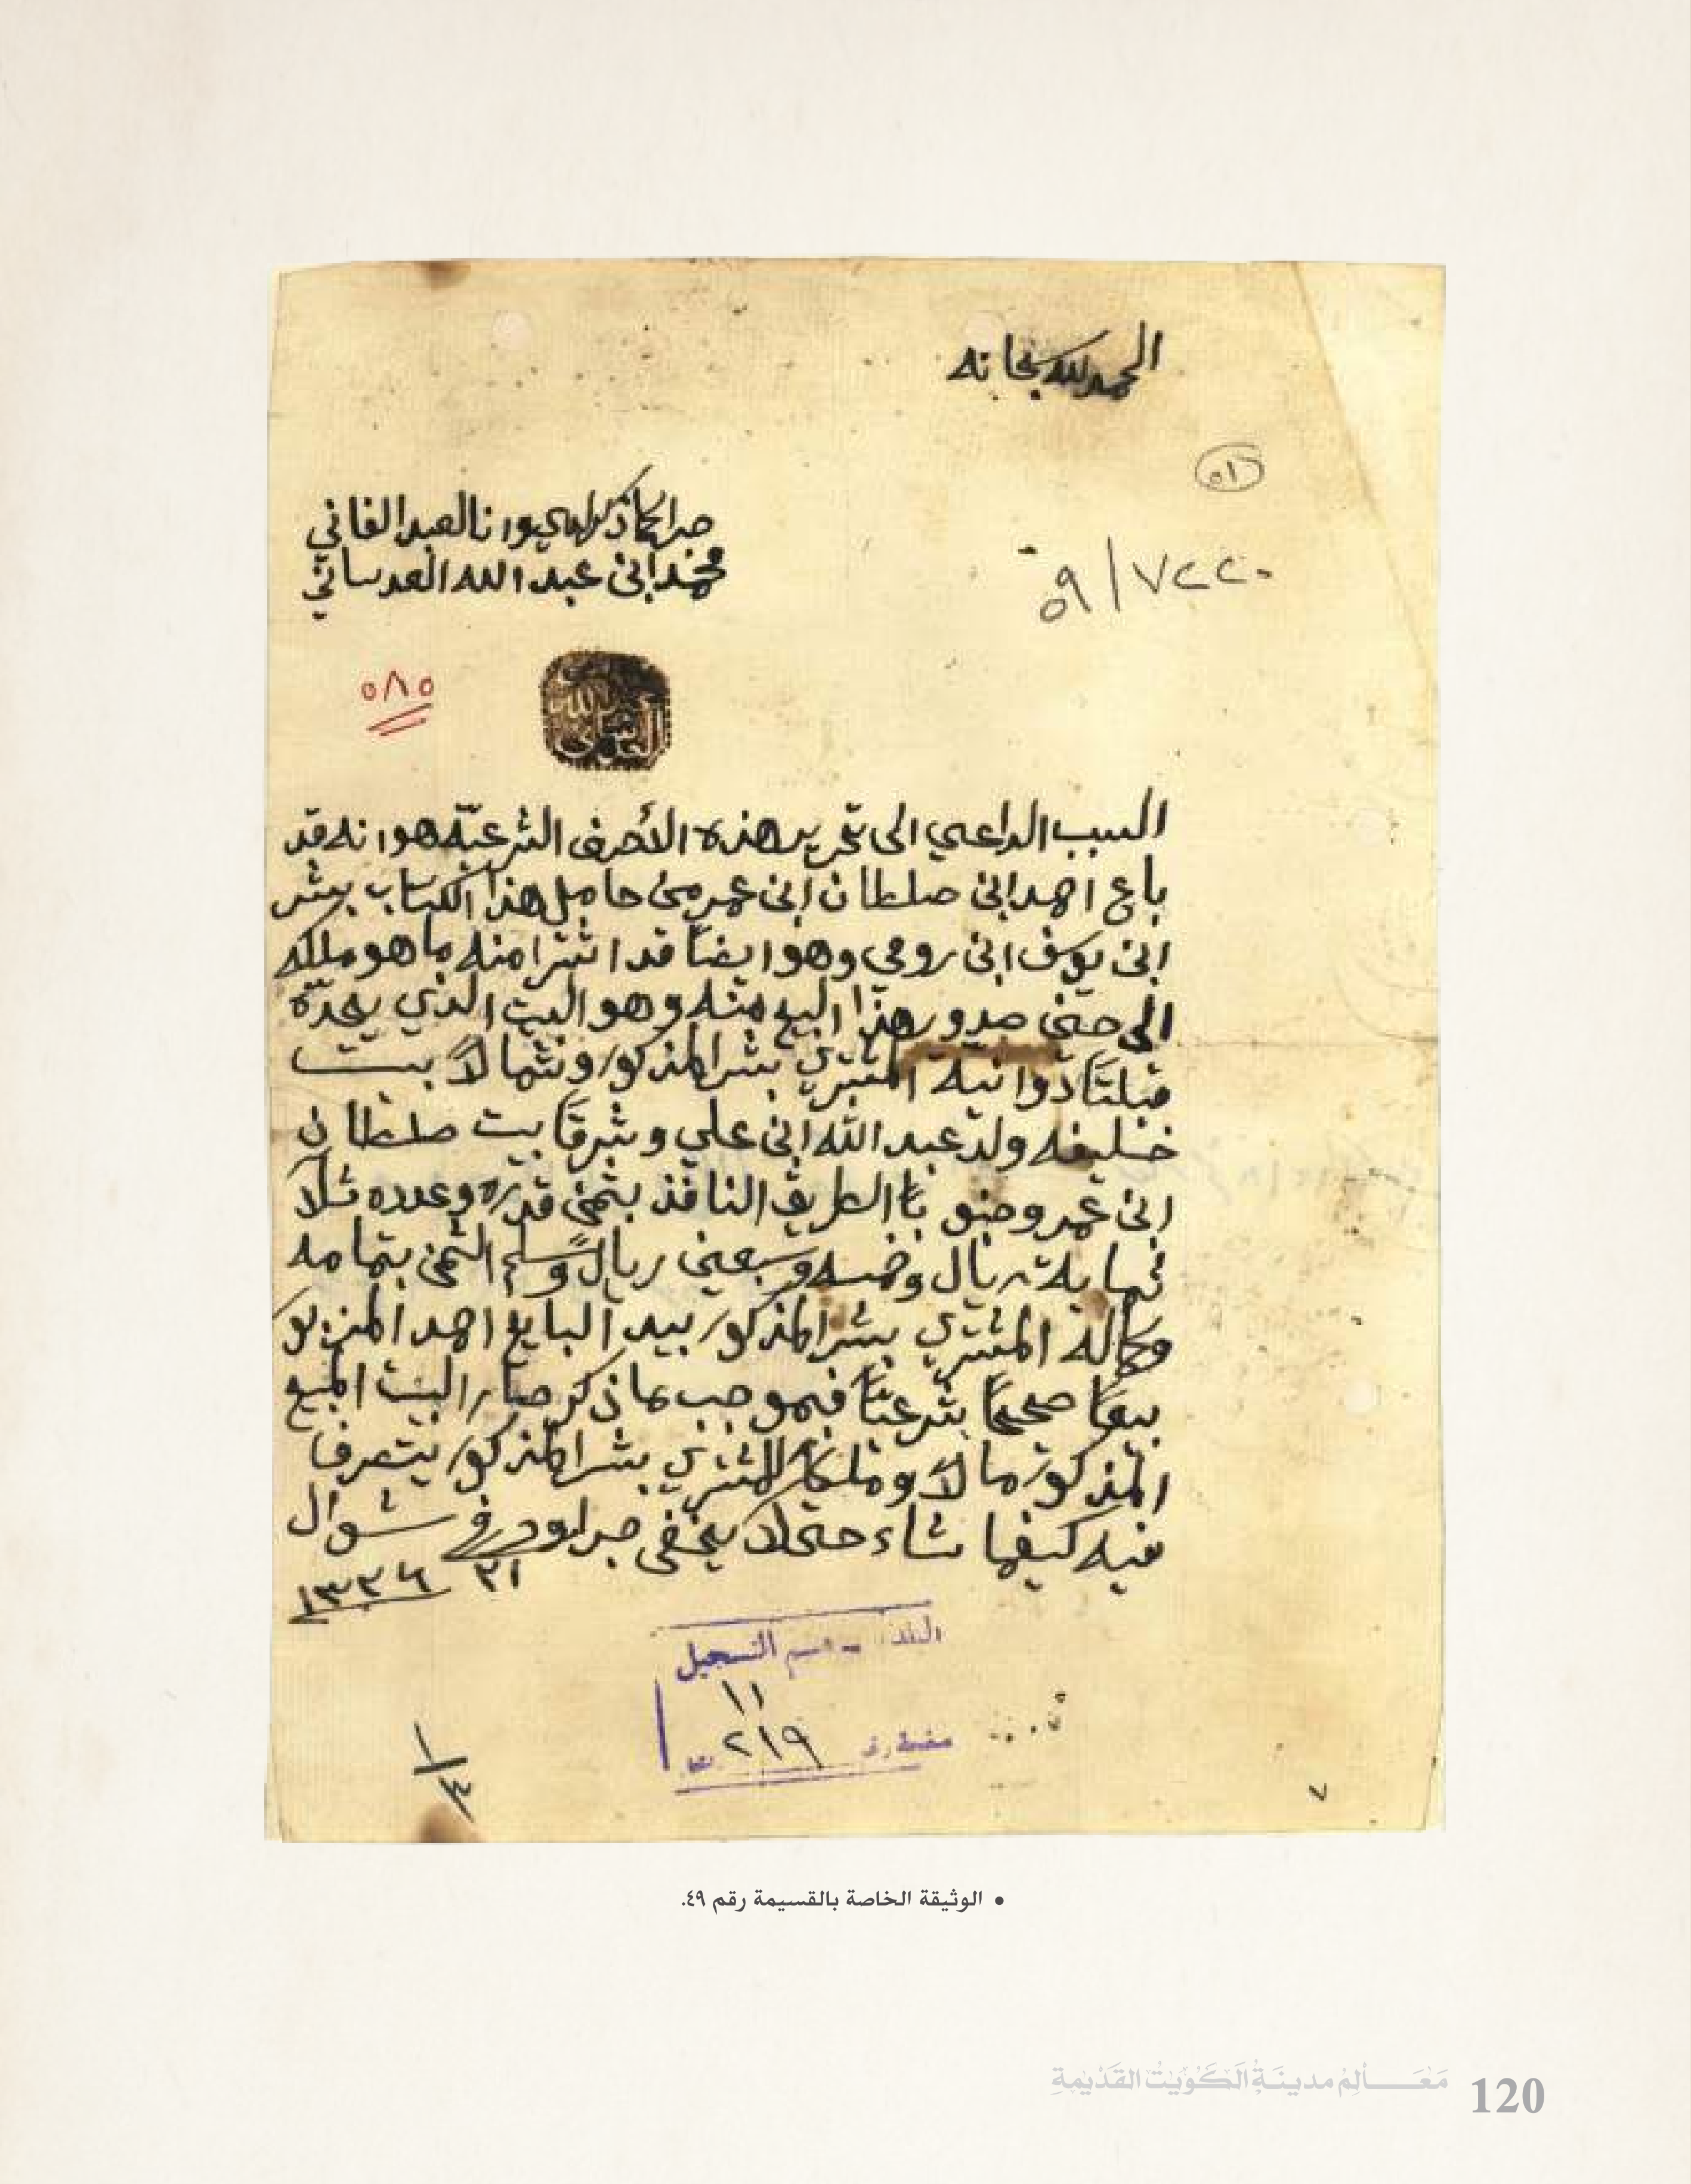 الحمد لله سبحانه
٥١
جرا كما ذكر لدي وانا العبد الفاني
محمد ابن عبد الله العدساني
٧٢٢٠/٥٩
٥٨٥
السبب الداعي الى تحرير هذه الأحرف الشرعيّة هو انه قد
باع احمد ابن صلطان ابن عمر من حامل هذا الكتاب بشر
ابن يوسف ابن رومي وهو ايضًا قد اشترا منه ما هو ملكه
الى حين صدور هذا البيع منه وهو البيت الذي يحدّه
قبلتًا دوانية المشتري بشر المذكور وشمالاً بيت
خليفه ولد عبد الله ابن علي وشرقًا بيت صلطان
ابن عمر وجنوبًا الطريق النافذ بثمن قدره وعدده ثلا
ثماية ريال وخمسه وسبعين ريال وسلم الثمن بتمامه
وكماله المشتري بشر المذكور بيد البايع احمد المزبو
بيعًا صحيحًا شرعيًا فبموجب ما ذكر صار البيت المبيع
المذكور مالاً وملكًا للمشتري بشر المذكور يتصرف
فيه كيفما شاء حتى لا يخفى جرا وحرر في شوال
٢١ ١٣٣٦
قسم التسجيل
١١
صفحة رقم ٢١٩
١/٤
٧
• الوثيقة الخاصة بالقسيمة رقم ٤٩.
مَعَـالِمُ مدينَةِ الكَوَيْت القَدْيمةِ 120